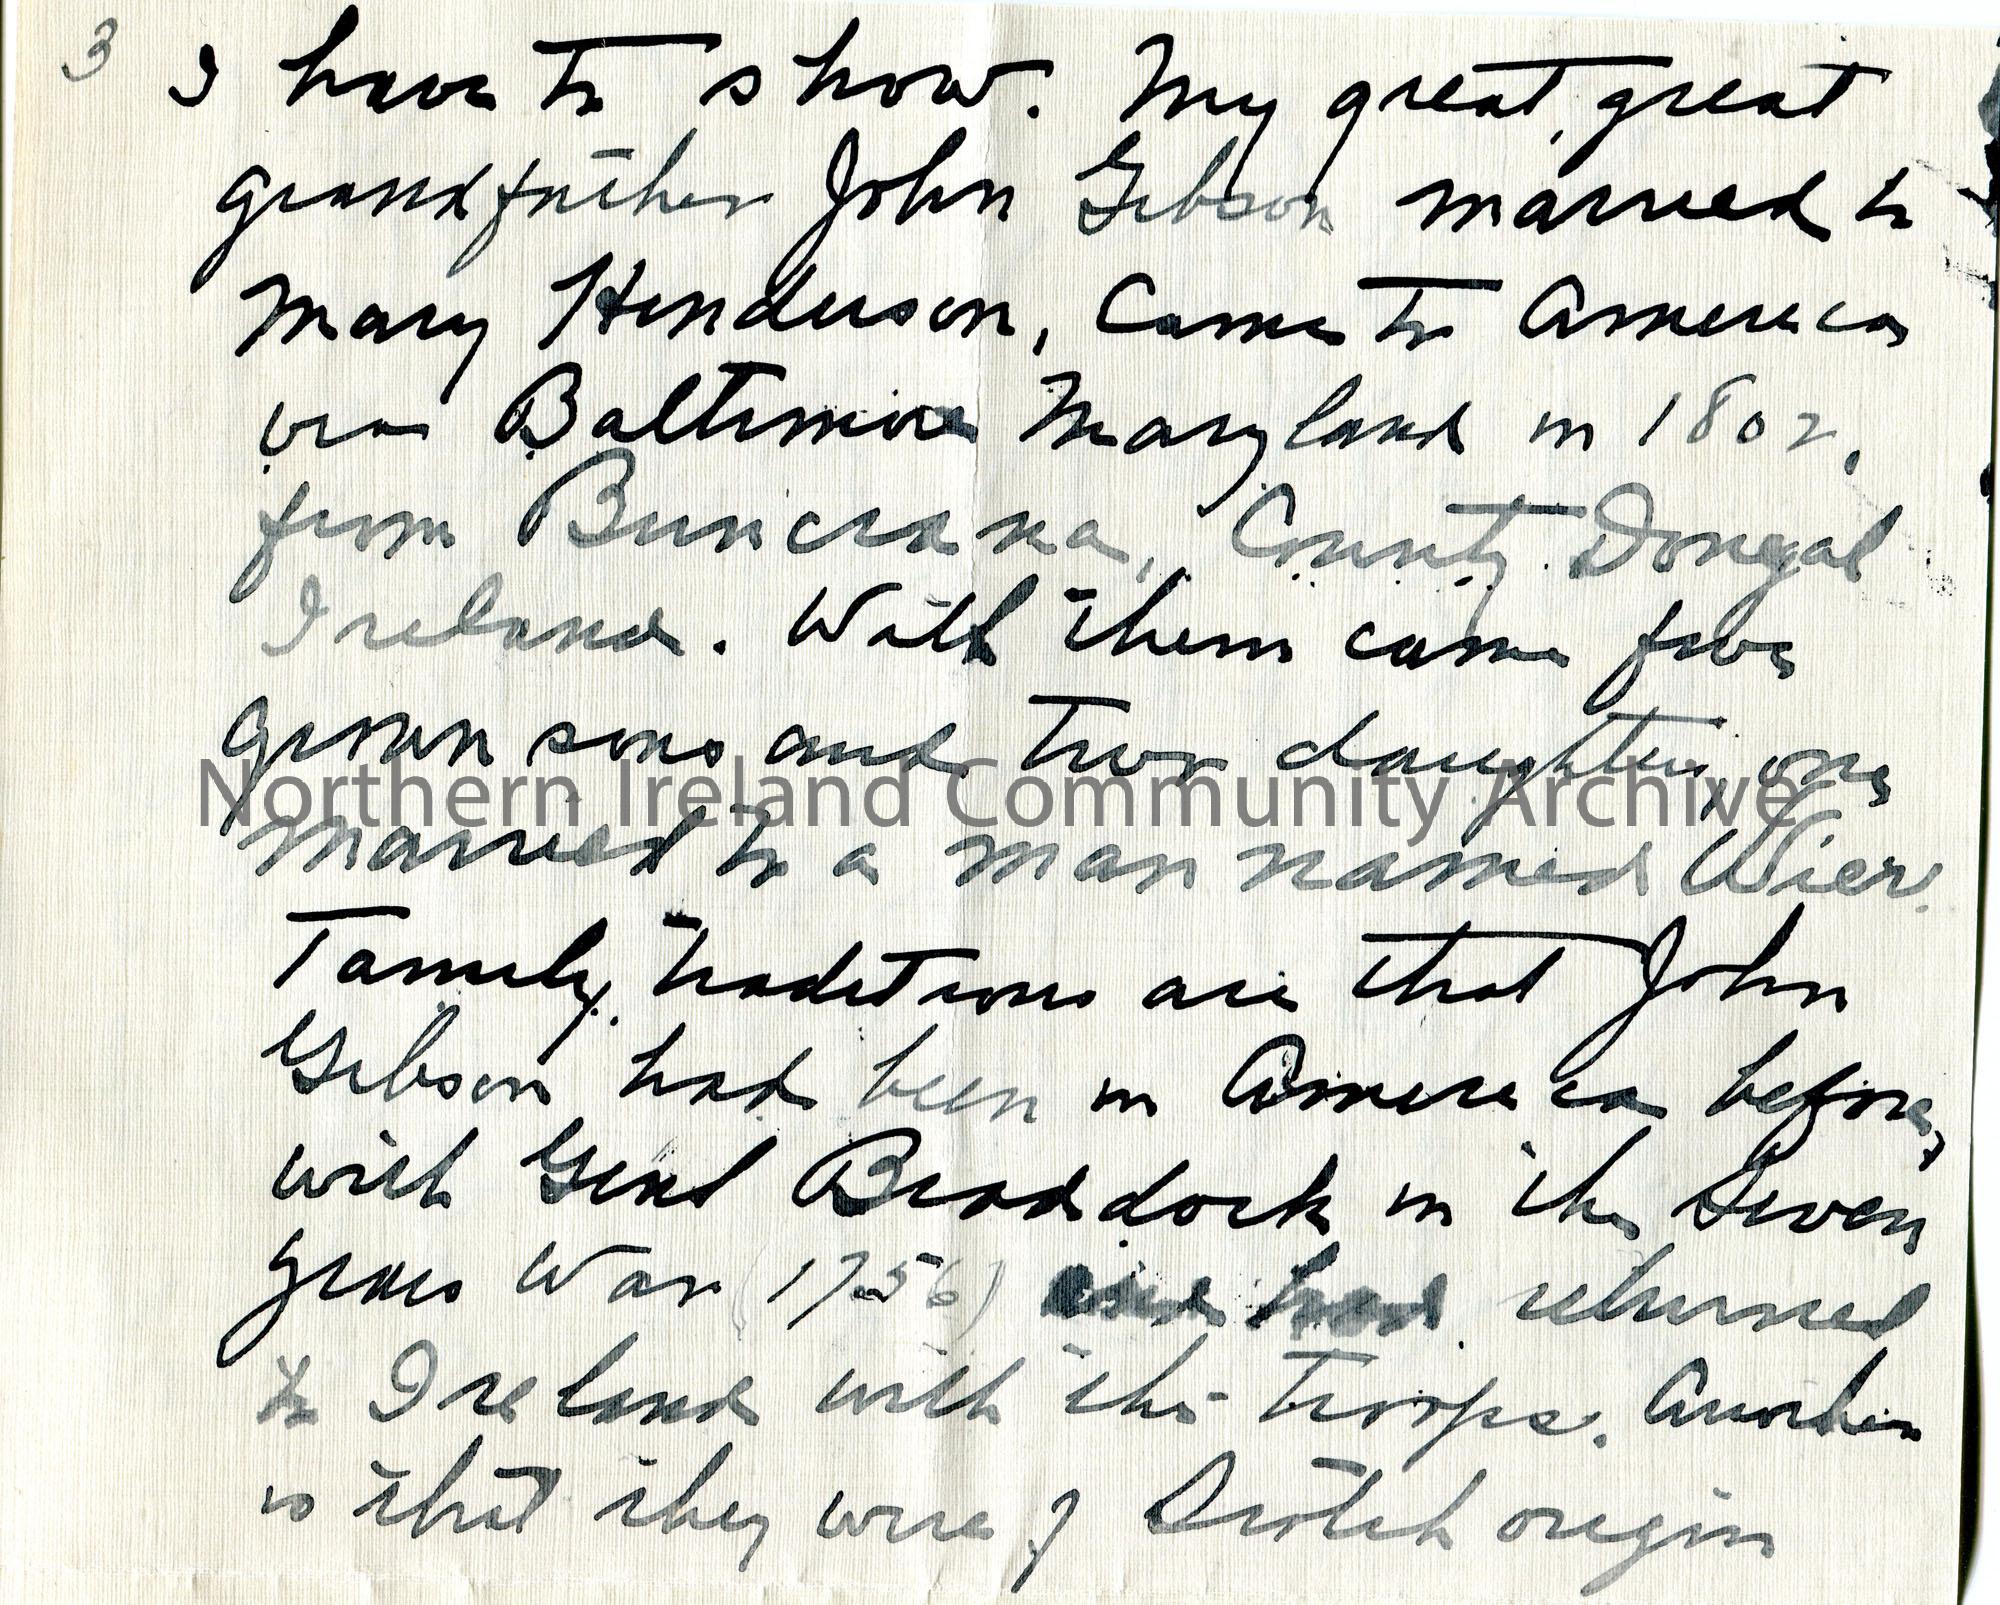 3 I have to show. My great, great
grandfather John Gibson married to
Mary Henderson, Came to America
via Baltimore Maryland in 1802,
from Buncrana, County Donegal
Ireland. With them came five
grown sons and two daughters, one
Northern Ireland Community Archive
married to a man named Wier.
Family traditions are that John
Gibson had been in America before,
with Genl Braddock in the Seven
years War (1756) and had returned
to Ireland with the troops. Another
is that they were of Scotch origin